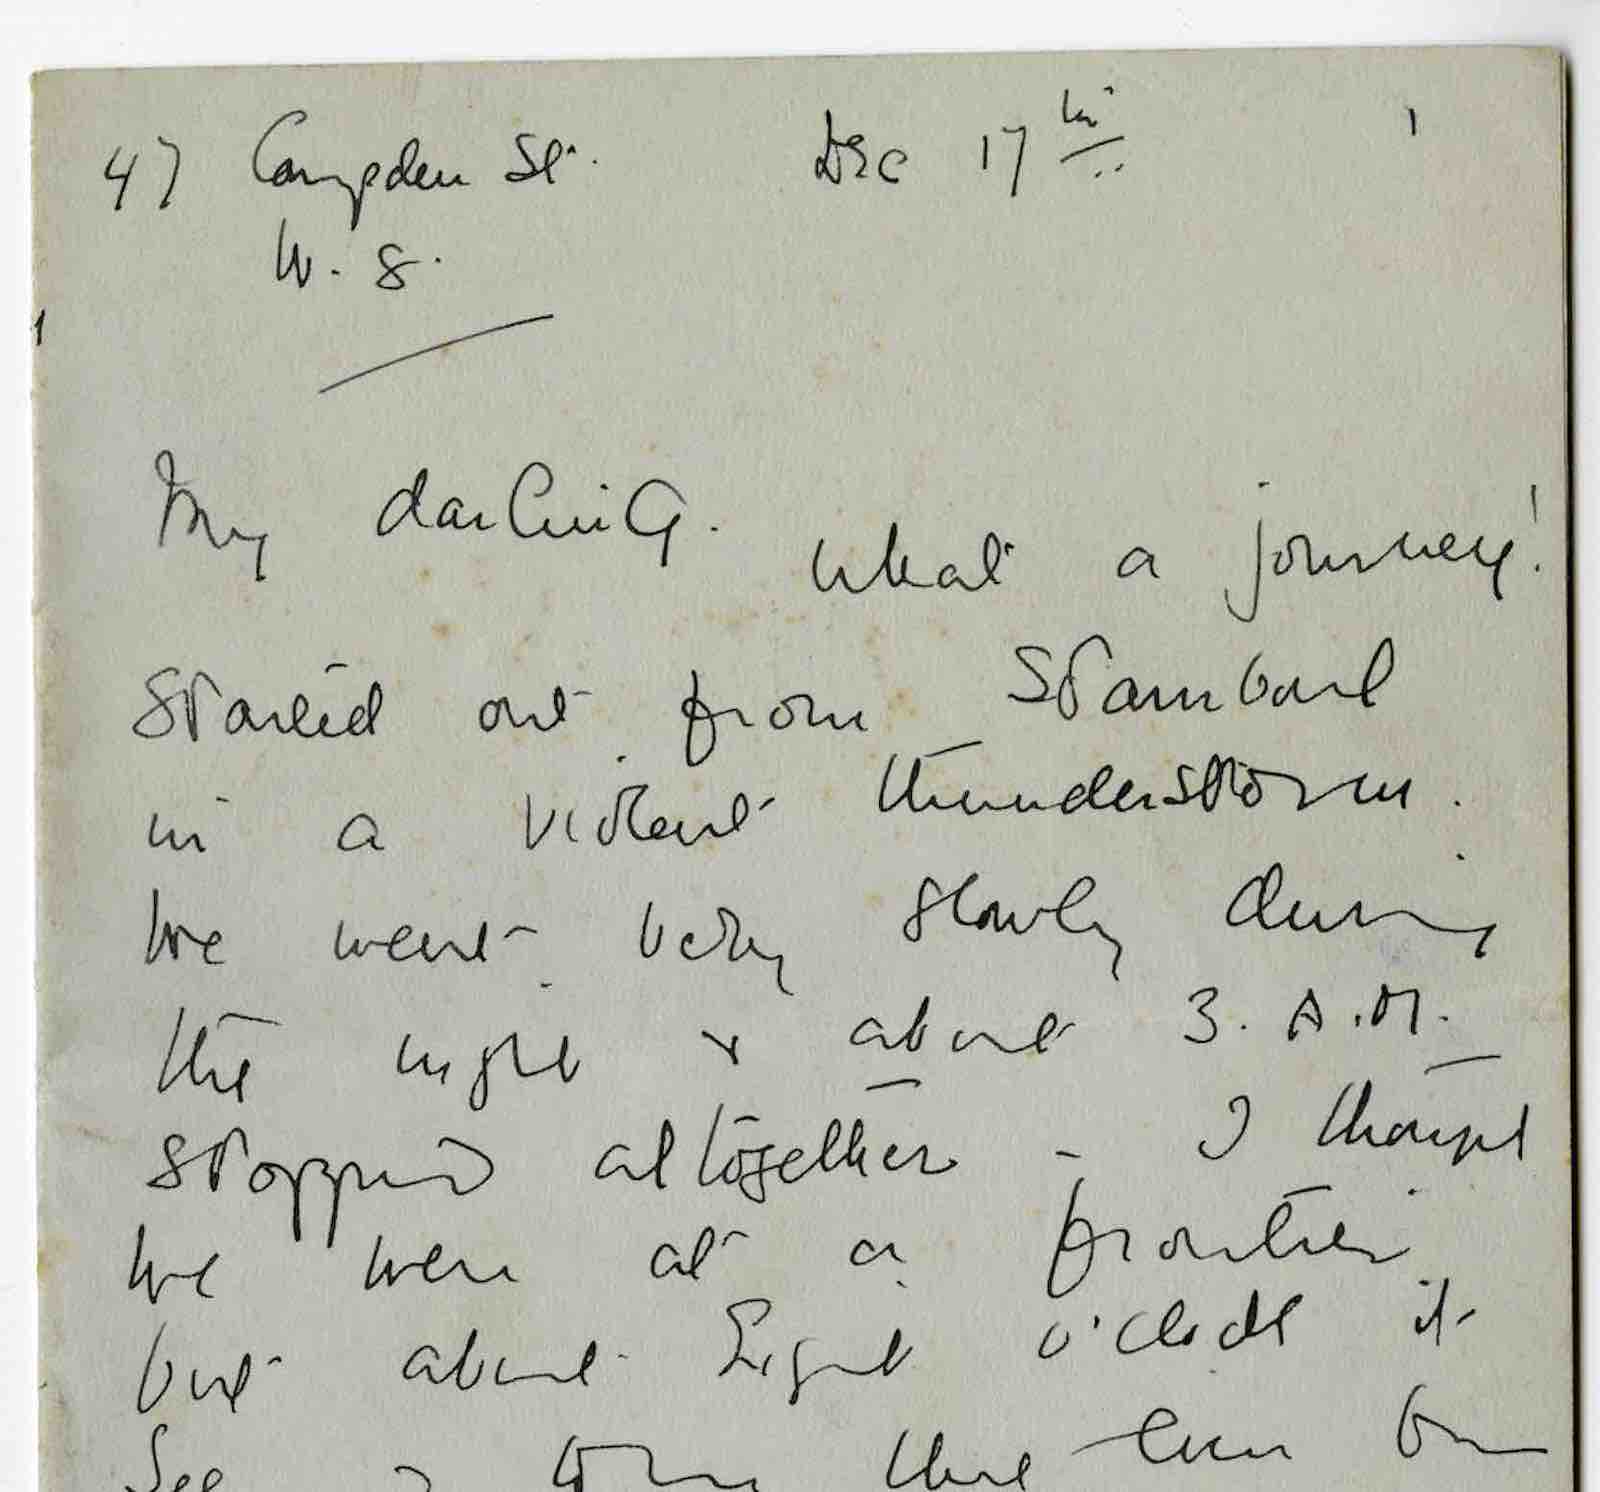 47 Campden St. Dec 17th 1
W. 8.
My darling. What a journey!
Started out from Stamboul
in a violent thunderstorm.
We went very slowly during
the night & about 3. A.M.
stopped altogether - I thought
we were at a frontier
but about Eight o'clock it
there